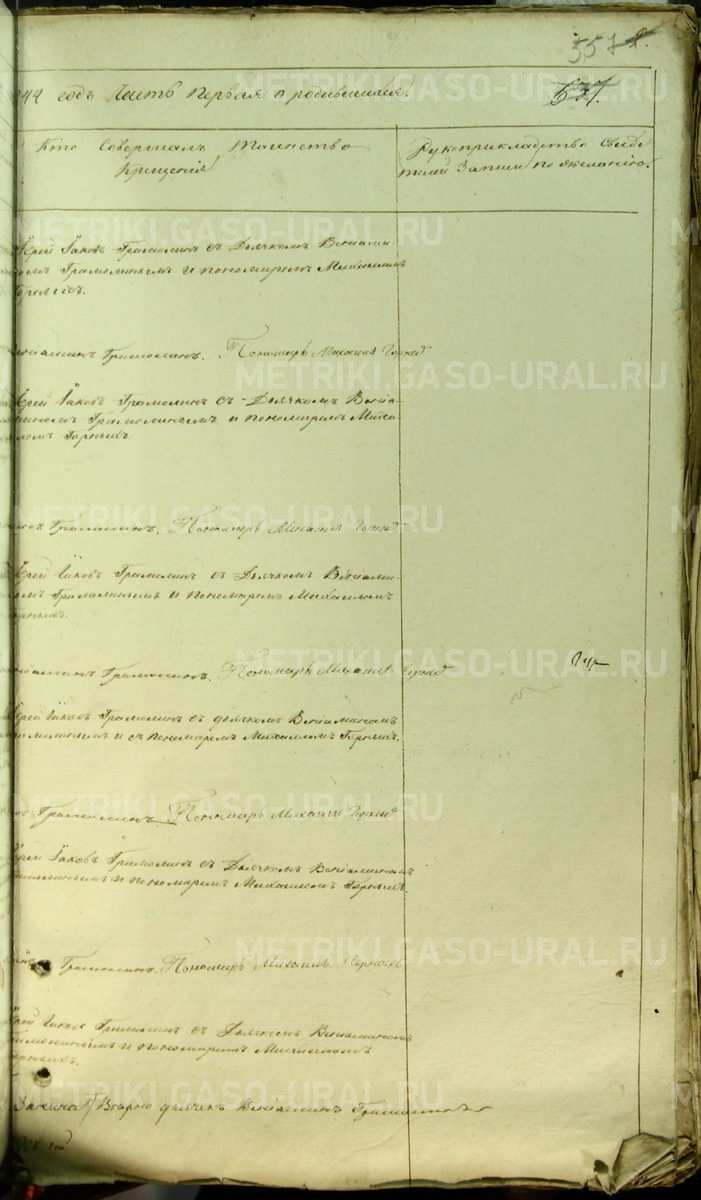 557
637.
844 годъ Часть Первая о родившихся.
Кто Совершалъ Таинство
Крещенія
Рукоприкладство Свиде
телей Записи по желанію.
Іерей Іаковъ Грамолинъ съ Дьячкомъ Веніами
номъ Грамолинымъ и пономаремъ Михаиломъ
Горныхъ.
Веніаминъ Грамолинъ. Пономарь Михаилъ Горныхъ
Іерей Іаковъ Грамолинъ съ Дьячкомъ Веніа-
миномъ Грамолинымъ и пономаремъ Миха-
ломъ Горныхъ
Грамолинъ. Пономарь Михаилъ Горныхъ
Іерей Іаковъ Грамолинъ съ Дьячкомъ Веніами-
номъ Грамолинымъ и Пономаремъ Михаиломъ
Горныхъ.
Веніаминъ Грамолинъ. Пономарь Михаилъ Горныхъ
Іерей Іаковъ Грамолинъ съ дьячкомъ Веніаминомъ
Грамолинымъ и съ пономаремъ Михаиломъ Горныхъ.
Грамолинъ. Пономарь Михаилъ Горныхъ
Іерей Іаковъ Грамолинъ съ Дьячкомъ Веніаминомъ
Грамолинымъ и пономаремъ Михаиломъ Горныхъ.
Грамолинъ. Пономарь Михаилъ Горныхъ
Іерей Іаковъ Грамолинъ съ Дьячкомъ Веніаминомъ
Грамолинымъ и пономаремъ Михаиломъ
Горныхъ.
дьячек Веніаминъ Грамолинъ
METRIKI.GASO-URAL.RU